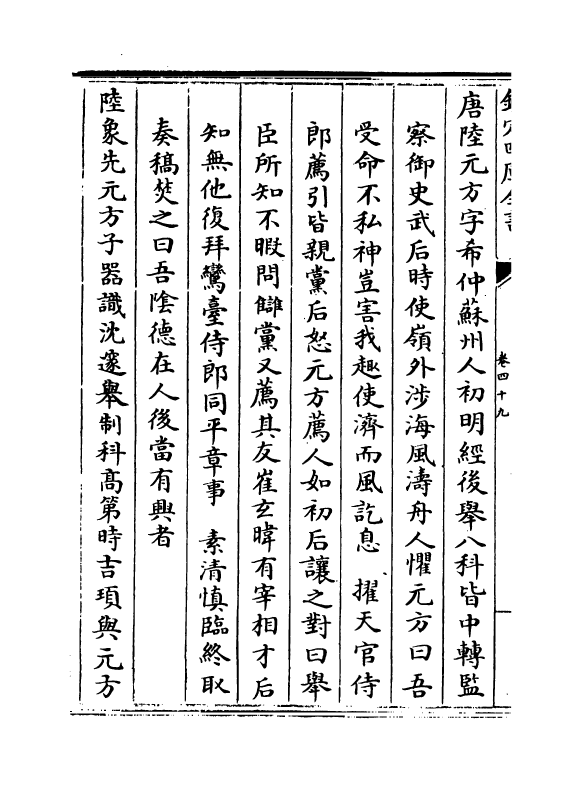 唐陸元方字希仲蘇州人初明經後舉八科皆中轉監
察御史武后時使嶺外涉海風濤舟人懼元方曰吾
受命不私神豈害我趣使濟而風訖息　擢天官侍
郎薦引皆親黨后怒元方薦人如初后讓之對曰舉
臣所知不暇問讎黨又薦其友崔玄暐有宰相才后
知無他復拜鸞臺侍郎同平章事　素清慎臨終取
奏稿焚之曰吾陰德在人後當有興者
陸象先元方子器識沈邃舉制科高第時吉頊與元方
卷四十九